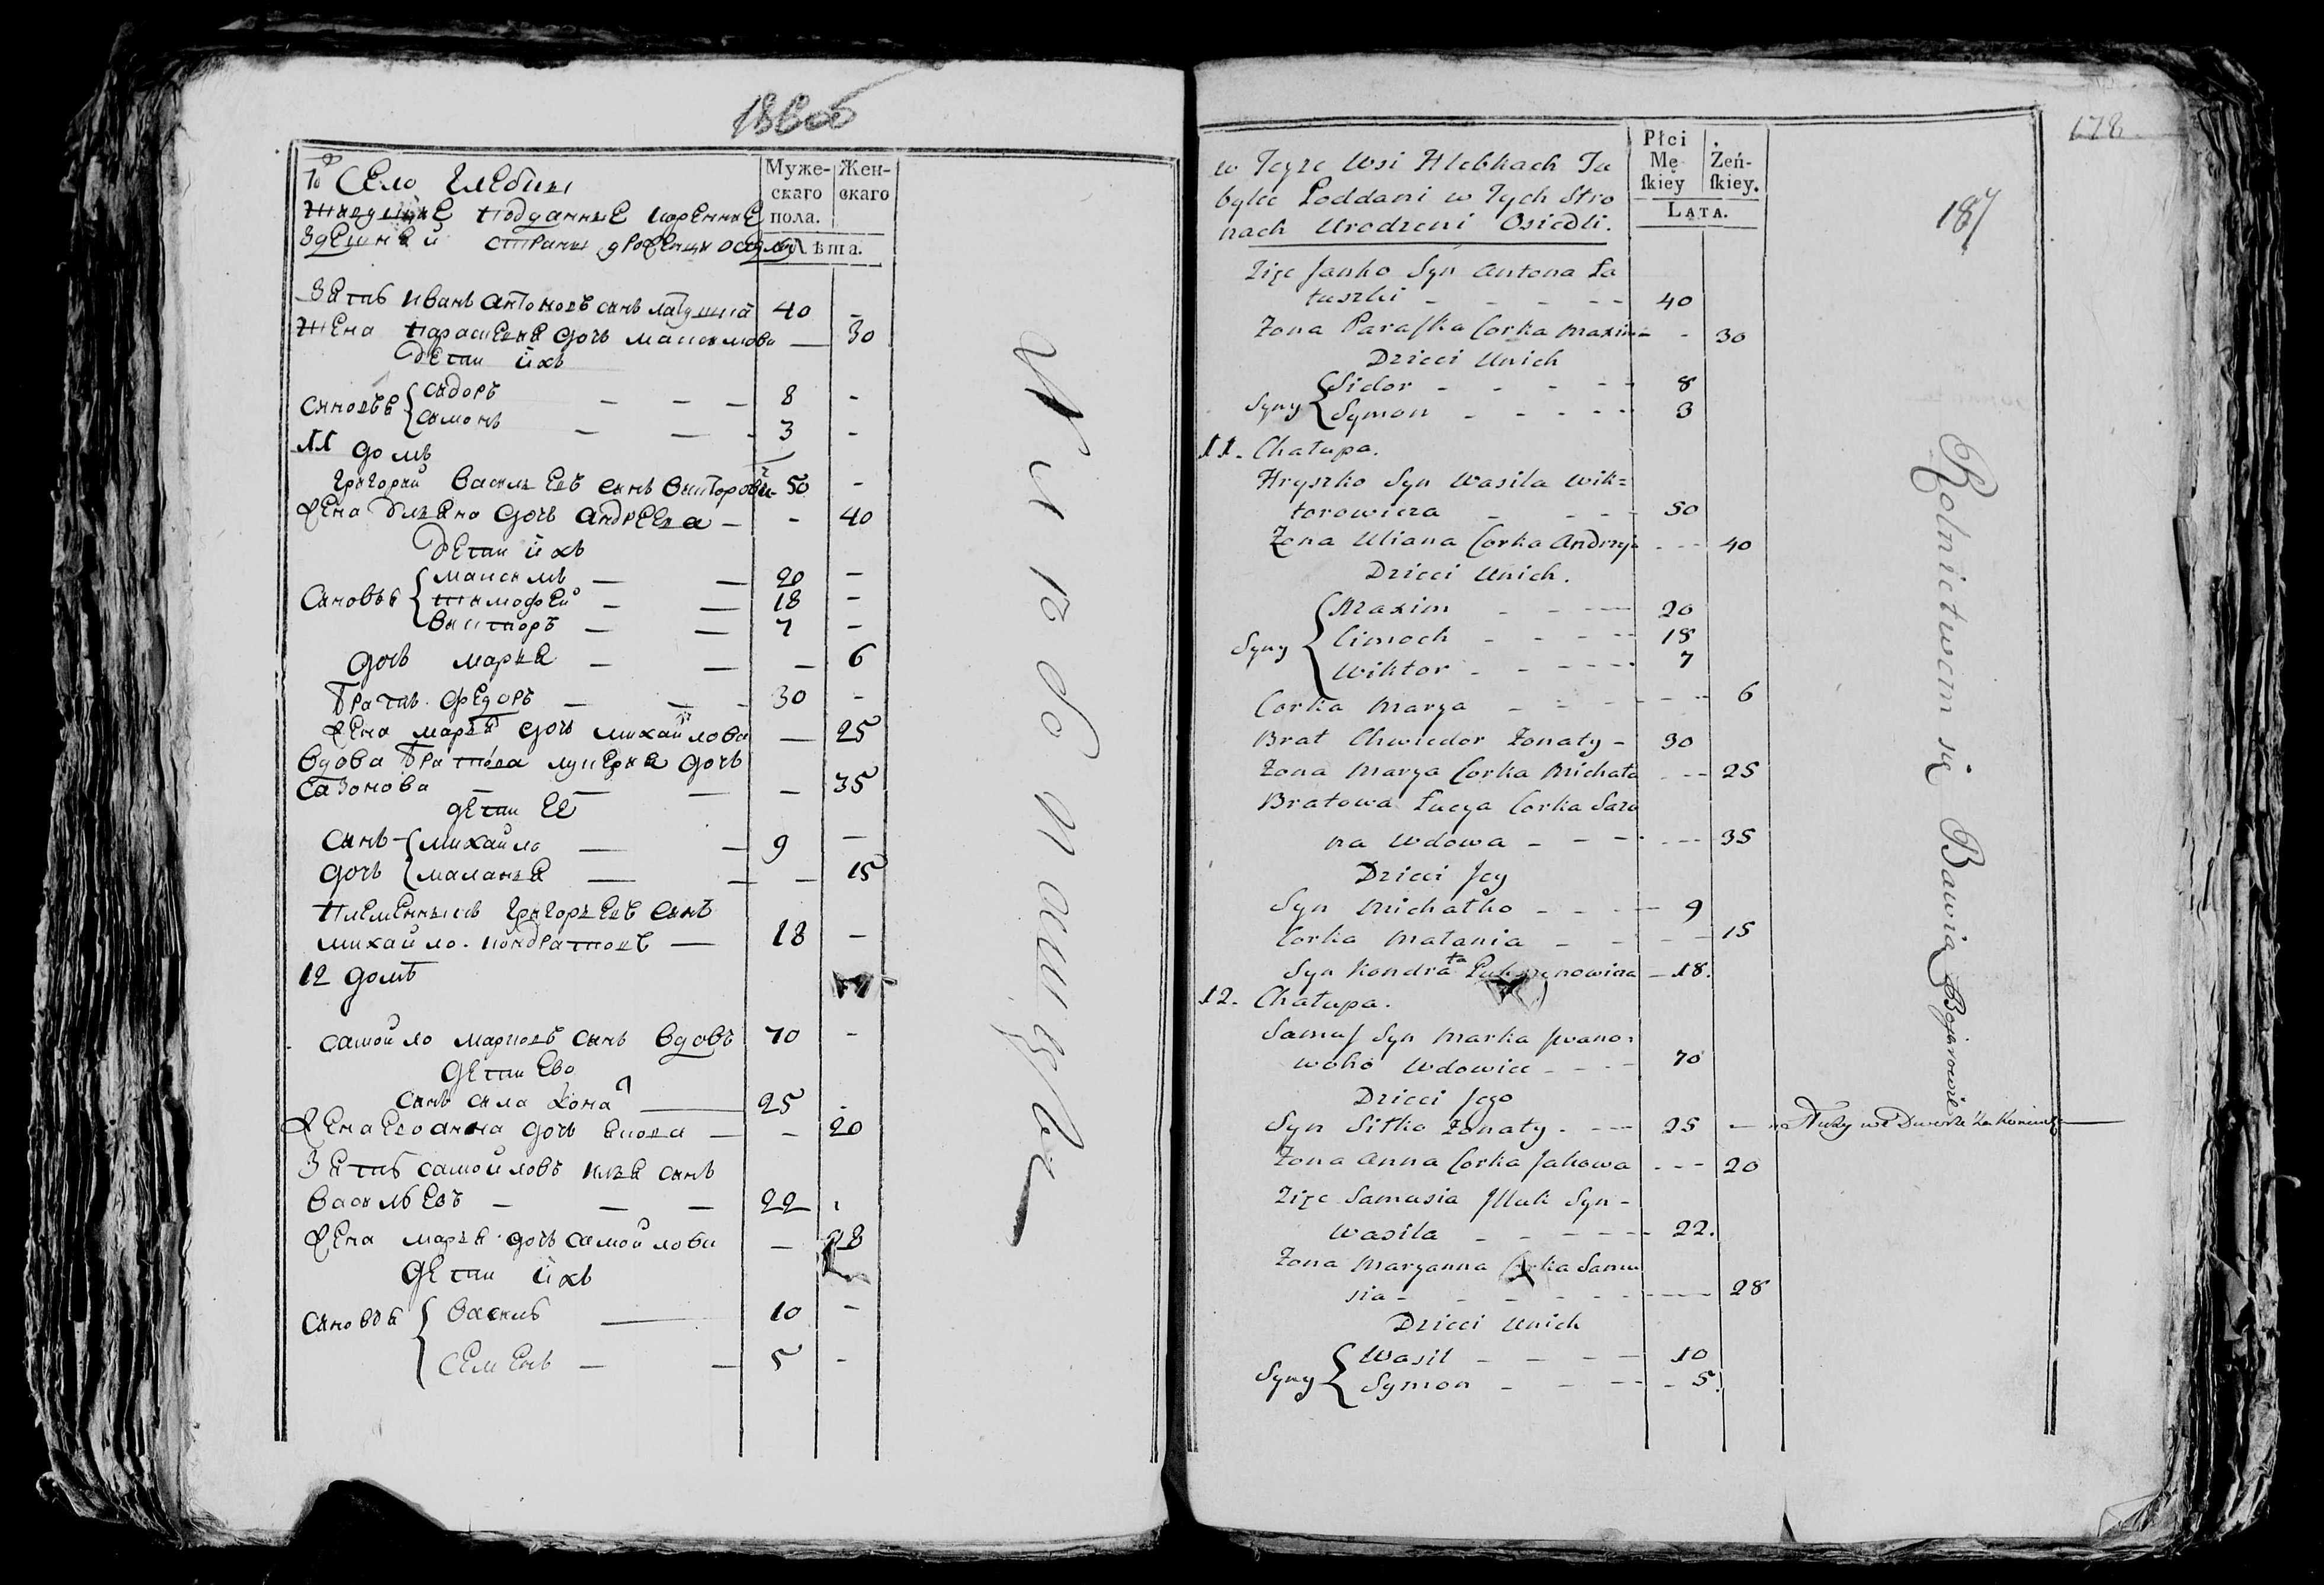 Село Глебки
подданные коренные
здешней страны
Муже-
скаго
пола.
Жен-
скаго
Лѣта.
Зять Иванъ Антоновъ сынъ 40 -
Жена Параскевия дочь Максимова — 30
Дети ихъ
Сыновья
Сидоръ — — — 8 -
Симонъ — — - 3 -
11 домъ
Григорий Васильевъ сынъ Викторович 50 -
Жена Ульяна дочь Андреева — - 40
Дети ихъ
Сыновья
Максимъ — — 20 —
Тимофей — — 18 —
Викторъ — — 7 —
дочь Марья — — — 6
Братъ Федоръ — — - 30 -
Жена Марья дочь Михайлова — 25
Вдова братова Лукерия дочь
Сазонова — — — — 35
дети ее
Сынъ Михайло — — 9 —
дочь Маланья — — — 15
Племянникъ Григорьевъ сынъ
Михайло Кондратовъ — 18 —
12 домъ
Самойло Марковъ сынъ вдовъ 70 -
дети ево
Сынъ Сила 25 -
Жена ево Анна дочь — — 20
Зять Самойловъ Илья сынъ
Васильевъ — — — 22
Жена Марья дочь Самойлова — 28
Дети ихъ
Сыновья
Василь — 10 —
Семенъ — — 5 -
w Teyże Wsi Hlebkach Tu
bylce Poddani w Tych Stro
nach Urodzeni Osiedli.
Płci
Mę-
ſkiey
Żeń-
ſkiey.
LATA.
178
187
Zięć Janko Syn Antona Ła
tuszki - - - - - 40
Żona Paraſka Corka Maxim - - 30
Dzieci Unich
Syny
Sidor - - - - - 8
Symon - - - - - 3
11. Chałupa.
Hryszko Syn Wasila Wik=
torowicza - - - - 50
Żona Uliana Corka Andrzej - - - 40
Dzieci Unich.
Syny
Maxim - - - - 20
Cimoch - - - - - 18
Wiktor - - - - - 7
Corka Marya - - - - - - 6
Brat Chwiedor Żonaty - 30
Żona Marya Corka Michała - - - 25
Bratowa Łucya Corka Sazo
na Wdowa - - - - - - 35
Dzieci Jey
Syn Michałko - - - - 9
Corka Małania - - - - 15
Syn Kondrata - 18.
12. Chałupa.
Samuſ Syn Marka Jwano=
woho Wdowiec - - - - 70
Dzieci Jego
Syn Siłko Żonaty - - - 25
Żona Anna Corka Jakowa - - - 20
Zięć Samusia Jlluk Syn -
Wasila - - - - - - 22.
Żona Maryanna Corka Samu
sia - - - - - - - - 28
Dzieci Unich
Syny
Wasil - - - - - 10
Symon - - - - - 5.
Rolnictwem się Bawią